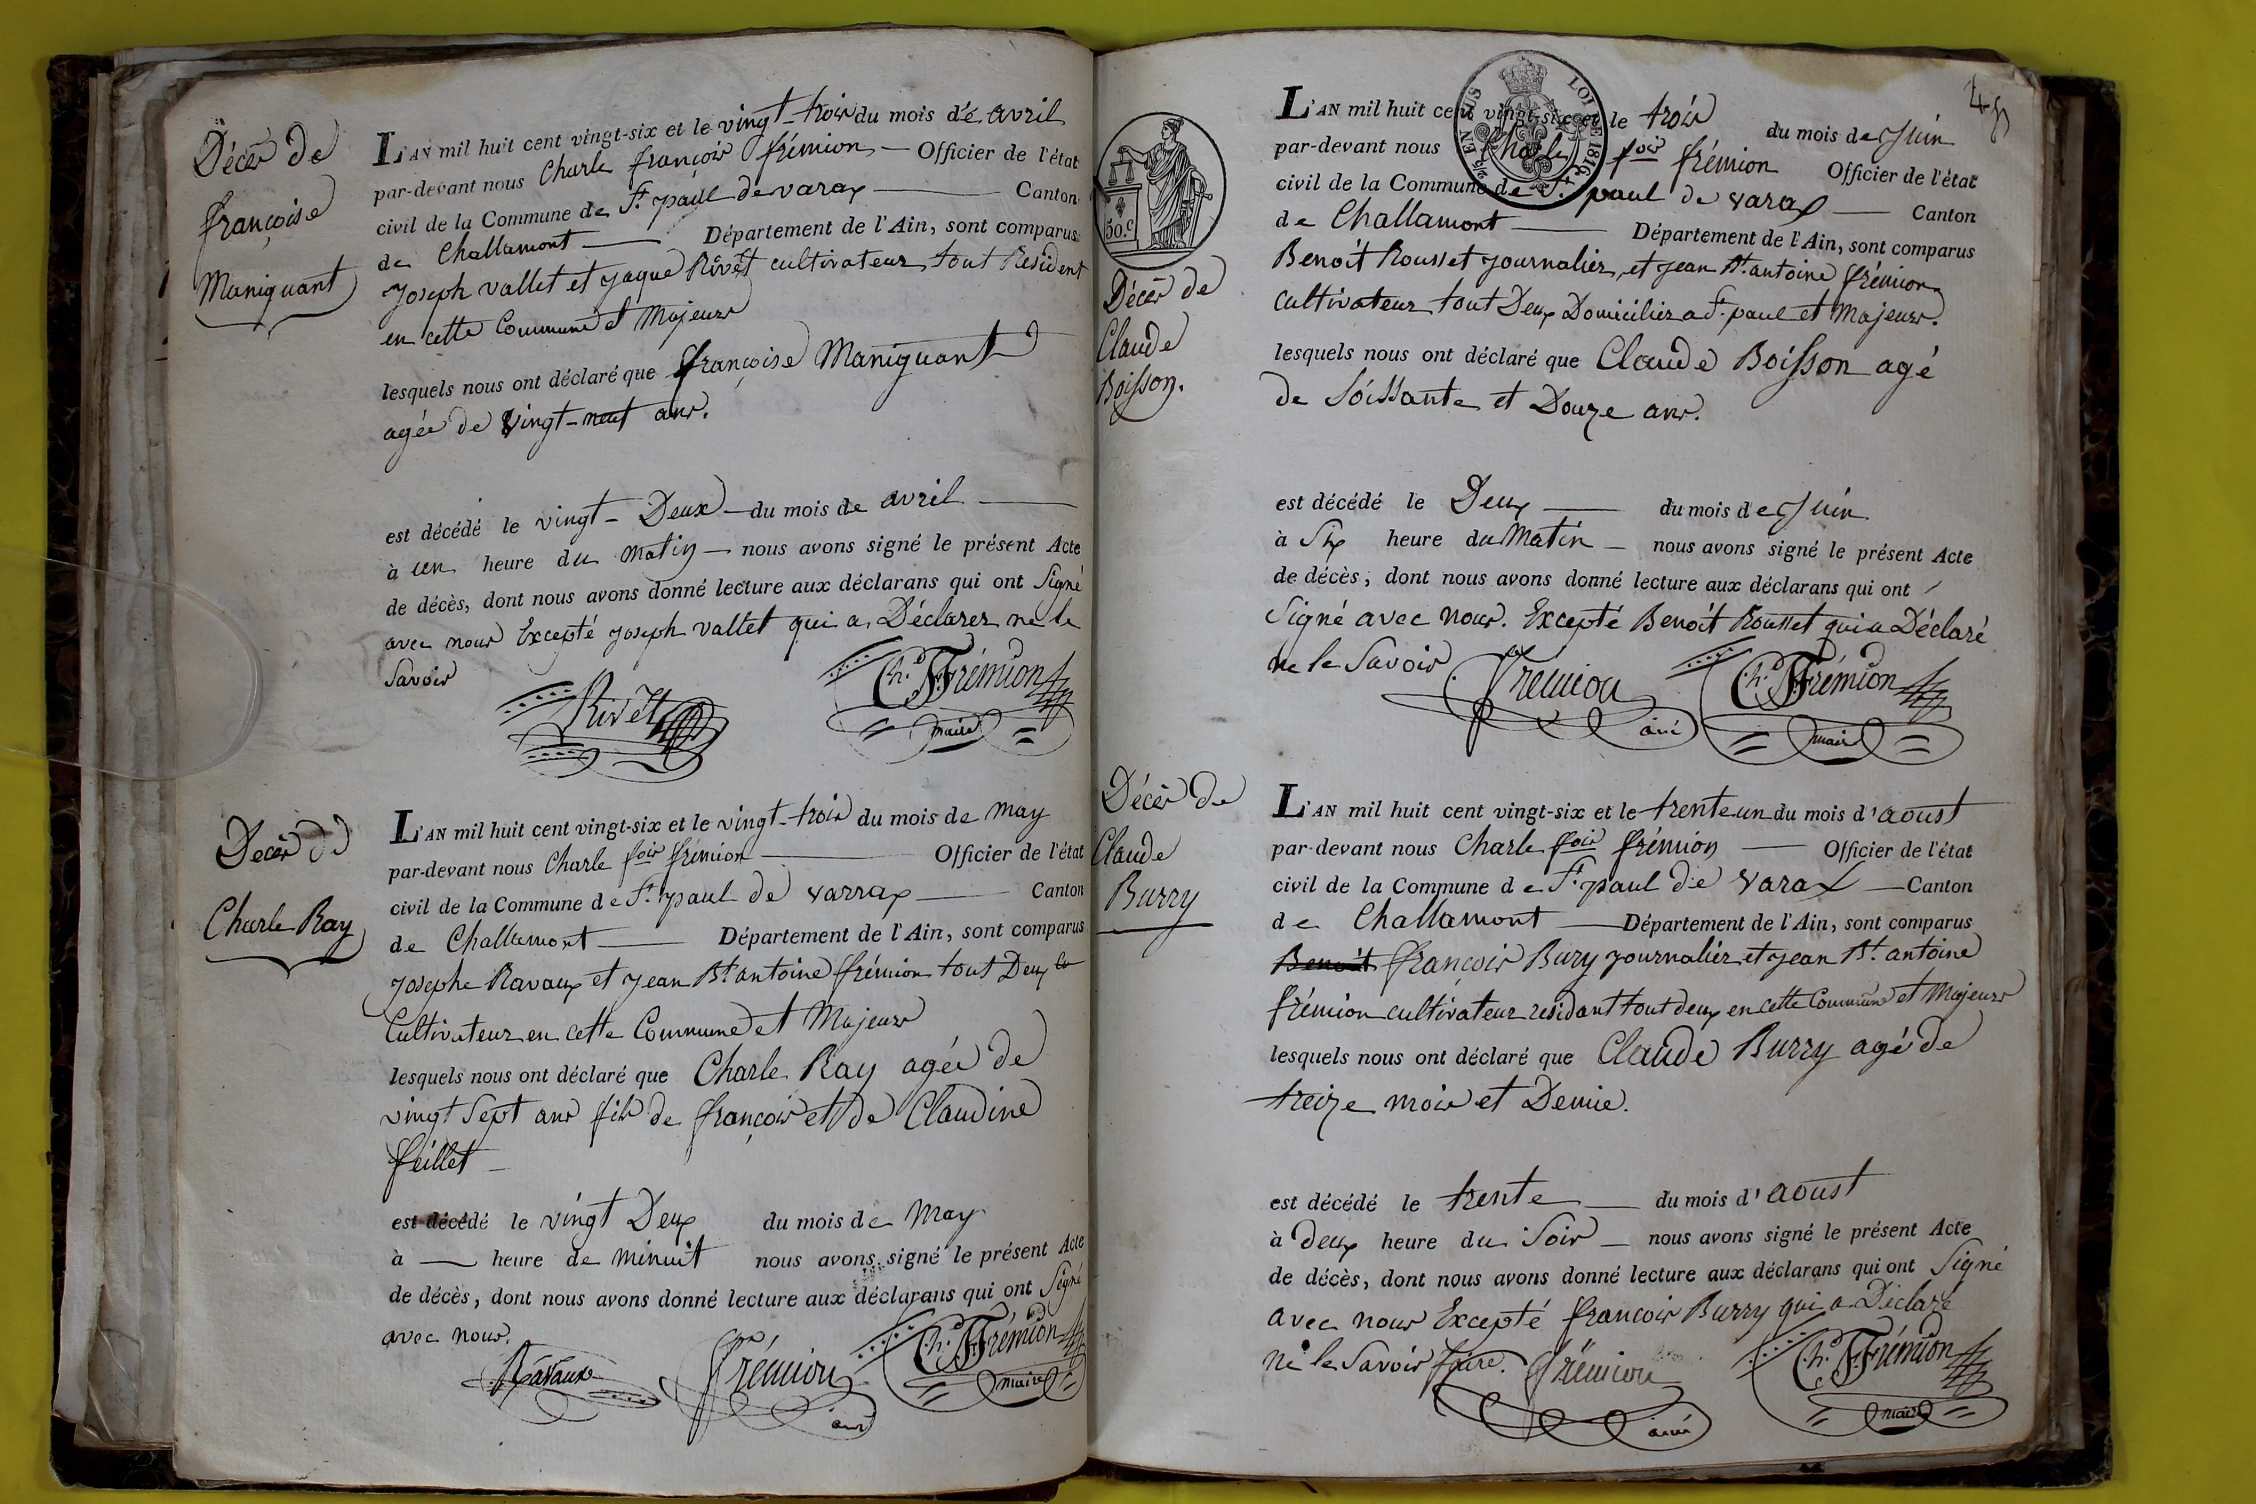 Décès de
françoise
Maniguant
L'AN mil huit cent vingt-six et le vingt-trois du mois de avril
par-devant nous Charle françois frémion — Officier de l'état
civil de la Commune de St. paul de varax — Canton
de Challamont — Département de l'Ain, sont comparus
Joseph vallet et Jaque Rivêt cultivateur tout Résident
en cette Commune et Majeurs
lesquels nous ont déclaré que françoise Maniguant
agée de vingt-neuf ans.
est décédé le vingt-Deux — du mois de avril —
à un heure du matin — nous avons signé le présent Acte
de décès, dont nous avons donné lecture aux déclarans qui ont Signé
avec nous Excepté Joseph vallet qui a Déclarer ne le
Savoir
Rivêt Ch. F. Frémion
maire
Décès de
Charle Ray
L'AN mil huit cent vingt-six et le vingt-trois du mois de may
par-devant nous Charle fois frémion — Officier de l'état
civil de la Commune de St. paul de varrax — Canton
de Challamont — Département de l'Ain, sont comparus
Josephe Ravaux et Jean Bt. antoine frémion tout Deux
Cultivateur en cette Commune et Majeurs
lesquels nous ont déclaré que Charle Ray agée de
vingt Sept ans fils de françois et de Claudine
feillet —
est décédé le vingt Deux du mois de May
à — heure de minuit nous avons signé le présent Acte
de décès, dont nous avons donné lecture aux déclarans qui ont Signé
avec nous.
Ravaux frémion Ch. F. Frémion
maire
LOI DE 1816
EN SUS
50.c
Décès de
Claude
Boisson.
L'AN mil huit cent vingt-six et le trois du mois de Juin
par-devant nous Charle fois frémion Officier de l'état
civil de la Commune de St. paul de varax — Canton
de Challamont — Département de l'Ain, sont comparus
Benoît Rousset Journalier, et Jean Bt. antoine frémion
cultivateur tout Deux Domicilier a St. paul et Majeurs.
lesquels nous ont déclaré que Claude Boisson agé
de Soissante et Douze ans.
est décédé le Deux — du mois de Juin
à Six heure du Matin — nous avons signé le présent Acte
de décès, dont nous avons donné lecture aux déclarans qui ont
Signé avec nous. Excepté Benoît Rousset qui a Déclaré
ne le Savoir. frémion Ch. F. Frémion
ainé maire
Décès de
Claude
Burry
L'AN mil huit cent vingt-six et le trente un du mois d'aoust
par-devant nous Charle fois frémion — Officier de l'état
civil de la Commune de St. paul de varax — Canton
de Challamont — Département de l'Ain, sont comparus
Benoit françois Bury Journalier, et Jean Bt. antoine
frémion cultivateur residant tout deux en cette Commune et Majeurs
lesquels nous ont déclaré que Claude Burry agé de
treize mois et Demie.
est décédé le trente — du mois d'aoust
à deux heure du Soir — nous avons signé le présent Acte
de décès, dont nous avons donné lecture aux déclarans qui ont Signé
avec nous Excepté françois Burry qui a Déclaré
ne le Savoir faire. frémion Ch. F. Frémion
ainé maire